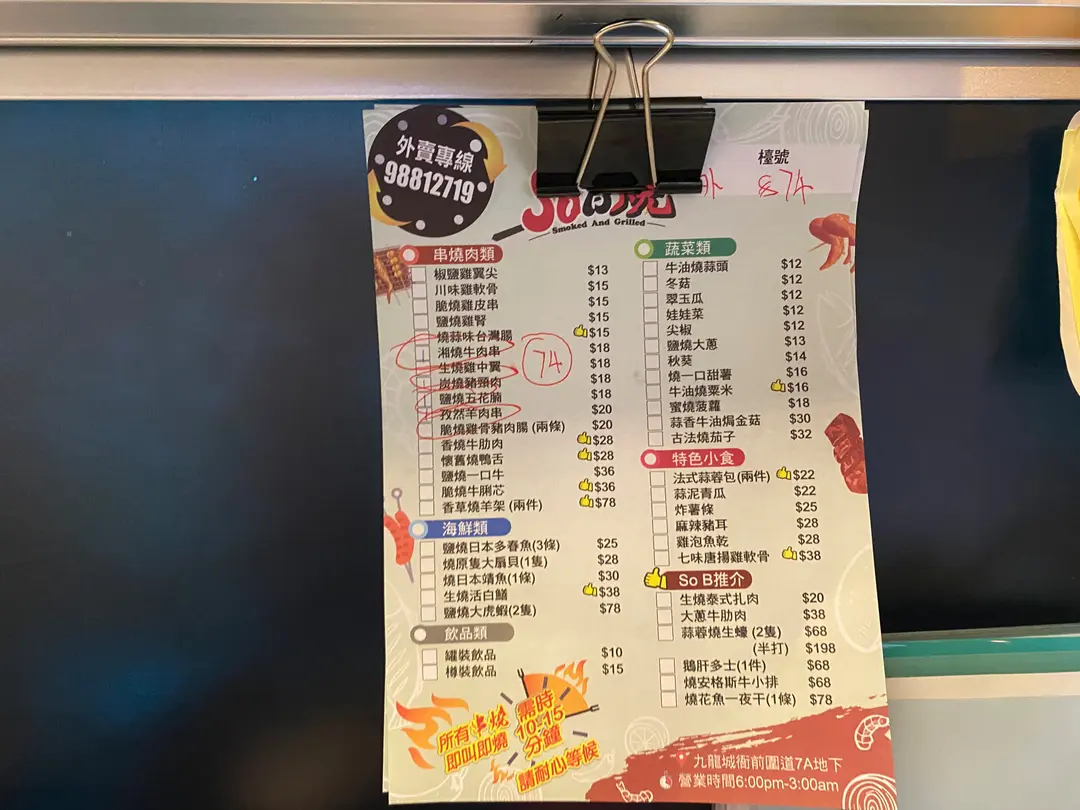 外賣專線
98812719
檯號
外 874
So B 燒
Smoked And Grilled
串燒肉類
椒鹽雞翼尖 $13
川味雞軟骨 $15
脆燒雞皮串 $15
鹽燒雞腎 $15
燒蒜味台灣腸 $15
湘燒牛肉串 $18
生燒雞中翼 $18
炭燒豬頸肉 $18
鹽燒五花腩 $18
孜然羊肉串 $20
脆燒雞骨豬肉腸 (兩條) $20
香燒牛肋肉 $28
懷舊燒鴨舌 $28
鹽燒一口牛 $36
脆燒牛脷芯 $36
香草燒羊架 (兩件) $78
74
海鮮類
鹽燒日本多春魚(3條) $25
燒原隻大扇貝(1隻) $28
燒日本靖魚(1條) $30
生燒活白鱔 $38
鹽燒大虎蝦(2隻) $78
飲品類
罐裝飲品 $10
樽裝飲品 $15
所有串燒
即叫即燒
需時
10-15
分鐘
請耐心等候
蔬菜類
牛油燒蒜頭 $12
冬菇 $12
翠玉瓜 $12
娃娃菜 $12
尖椒 $12
鹽燒大蔥 $13
秋葵 $14
燒一口甜薯 $16
牛油燒粟米 $16
蜜燒菠蘿 $18
蒜香牛油焗金菇 $30
古法燒茄子 $32
特色小食
法式蒜蓉包(兩件) $22
蒜泥青瓜 $22
炸薯條 $25
麻辣豬耳 $28
雞泡魚乾 $28
七味唐揚雞軟骨 $38
So B推介
生燒泰式扎肉 $20
大蔥牛肋肉 $38
蒜蓉燒生蠔 (2隻) $68
(半打) $198
鵝肝多士(1件) $68
燒安格斯牛小排 $68
燒花魚一夜干(1條) $78
九龍城衙前圍道7A地下
營業時間6:00pm-3:00am